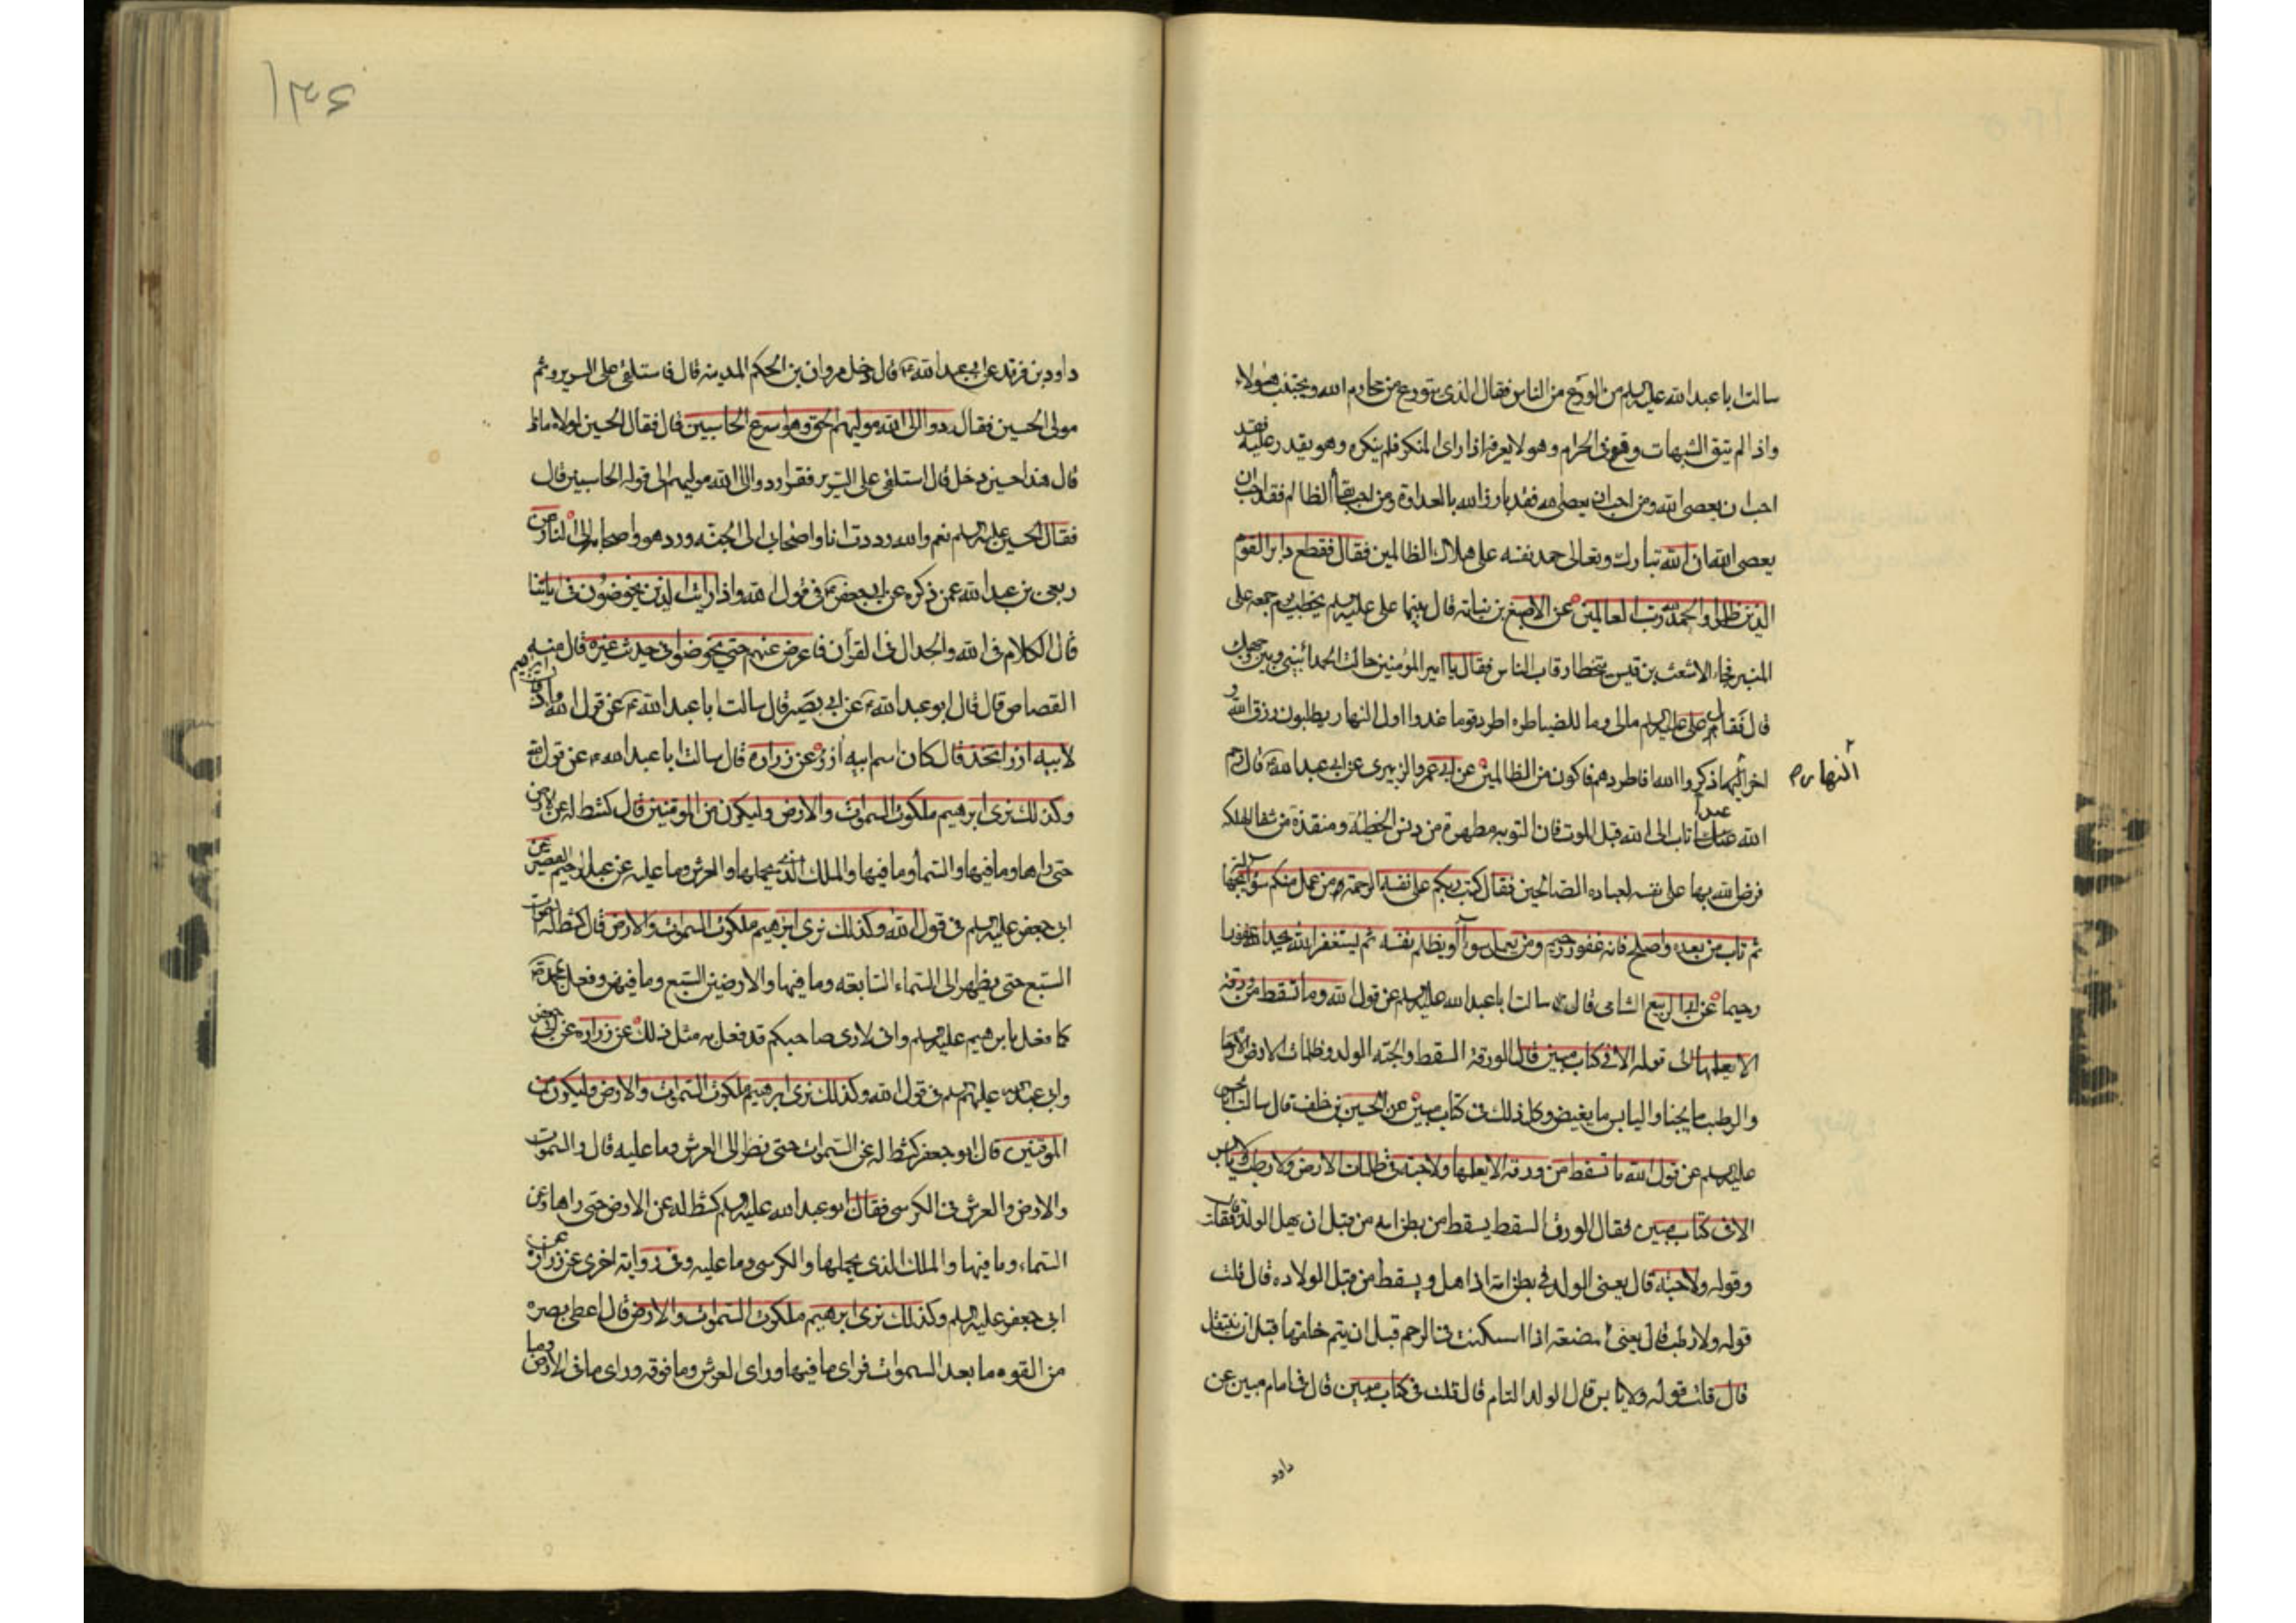 سالت ابا عبد الله عليه السلم من الورع من الناس فقال الذى يتورع من محارم الله ويجتنب هؤلاء
واذا لم يتق الشبهات وقع فى الحرام وهو لا يعرفه اذا راى المنكر فلم ينكره وهو يقدر عليه فقد
احب ان يعصى الله ومن احب ان يعصى الله فقد بارز الله بالعداوة ومن احب بقاء الظالم فقد احب ان
يعصى الله ان الله تبارك وتعالى حمد نفسه على هلاك الظالمين فقال فقطع دابر القوم
الذين ظلموا والحمد لله رب العالمين عن الاصبغ بن نباته قال بينما على عليه السلم يخطب يوم جمعه على
المنبر فجاء الاشعث بن قيس يتخطا رقاب الناس فقال يا امير المؤمنين حالت الحمد ا بينى وبين وجهك
قال فقال على عليه السلم مالى وما للضياطره اطرد قوما غدوا اول النهار يطلبون رزق الله و
اخر النهار ذكروا الله فاطردهم فاكون من الظالمين عن ابى عمرو الزبيرى عن ابى عبد الله ع قال رحم
النهار
الله عبدا تاب الى الله قبل الموت فان التوبه مطهرة من دنس الخطيئة ومنقذة من شفا الهلكه
فرض الله بها على نفسه لعباده الصالحين فقال كتب ربكم على نفسه الرحمة من عمل منكم سوءا بجهالة
ثم تاب من بعده واصلح فانه غفور رحيم ومن يعمل سوءا او يظلم نفسه ثم يستغفر الله يجد الله غفورا
رحيما عن ابى الربيع الشامى قال سالت ابا عبد الله عليه السلم عن قول الله وما تسقط من ورقة
الا يعلمها الى قوله الا فى كتاب مبين قال الورقة السقط والحبه الولد وظلمات الارض الارحام
والرطب ما يحيا واليابس ما يغيض وكل ذلك فى كتاب مبين عن الحسين بن خلف قال سالت ابا الحسن
عليه السلم عن قول الله ما تسقط من ورقه الا يعلمها ولا حبة فى ظلمات الارض ولا رطب ولا يابس
الا فى كتاب مبين فقال الورق السقط يسقط من بطن امه من قبل ان يهل الولد قال فقلت
وقوله ولا حبة قال يعنى الولد فى بطن امه اذا هل ويسقط من قبل الولاده قال قلت
قوله ولا رطب قال يعنى المضغه اذا اسكنت فى الرحم قبل ان يتم خلقها قبل ان ينتقل
قال قلت قوله ولا يابس قال الولد التام قال قلت فى كتاب مبين قال فى امام مبين عن
داود
١٣٦
داود بن فرقد عن ابى عبد الله ع قال دخل مروان بن الحكم المدينه قال فاستلقى على السرير وثم
مولى الحسين فقال ردوا الى الله موليهم الحق وهو اسرع الحاسبين قال فقال الحسين لمولاه ماذا
قال هذا حين دخل قال استلقى على السرير فقرا ردوا الى الله موليهم الى قوله الحاسبين قال
فقال الحسين عليه السلم نعم والله رددت انا واصحابى الى الجنه ورد هو واصحابه الى النار عن
ربعى بن عبد الله عمن ذكره عن ابى جعفر ع فى قول الله واذا رايت الذين يخوضون فى اياتنا
قال الكلام فى الله والجدال فى القرآن فاعرض عنهم حتى يخوضوا فى حديث غيره قال منه
القصاص قال قال ابو عبد الله ع عن ابى بصير قال سالت ابا عبد الله ع عن قول الله واذ قال ابرهيم
لابيه ازر اتتخذ قال كان اسم ابيه ازر عن زراره قال سالت ابا عبد الله ع عن قول الله
وكذلك نرى ابرهيم ملكوت السموات والارض وليكون من الموقنين قال كشط له عن الارض
حتى راها وما فيها والسماء وما فيها والملك الذى يحملها والعرش وما عليه عن عبد الرحيم القصير عن
ابى جعفر عليه السلم فى قول الله وكذلك نرى ابرهيم ملكوت السموات والارض قال كشط له السموات
السبع حتى نظر الى السماء السابعه وما فيها والارضين السبع وما فيهن وفعل بمحمد ص
كما فعل بابرهيم عليه السلم وانى لارى صاحبكم قد فعل به مثل ذلك عن زراره عن ابى جعفر
وابى عبد الله عليهما السلم فى قول الله وكذلك نرى ابرهيم ملكوت السموات والارض وليكون من
الموقنين قال ابو جعفر كشط له عن السموات حتى نظر الى العرش وما عليه قال والسموات
والارض والعرش فى الكرسى فقال ابو عبد الله عليه السلم كشط له عن الارض حتى راها وعن
السماء وما فيها والملك الذى يحملها والكرسى وما عليه وفى رواية اخرى عن زراره عن
ابى جعفر عليه السلم وكذلك نرى ابرهيم ملكوت السموات والارض قال اعطى بصره
من القوه ما بعد السموات فراى ما فيها وراى العرش وما فوقه وراى ما فى الارض وما